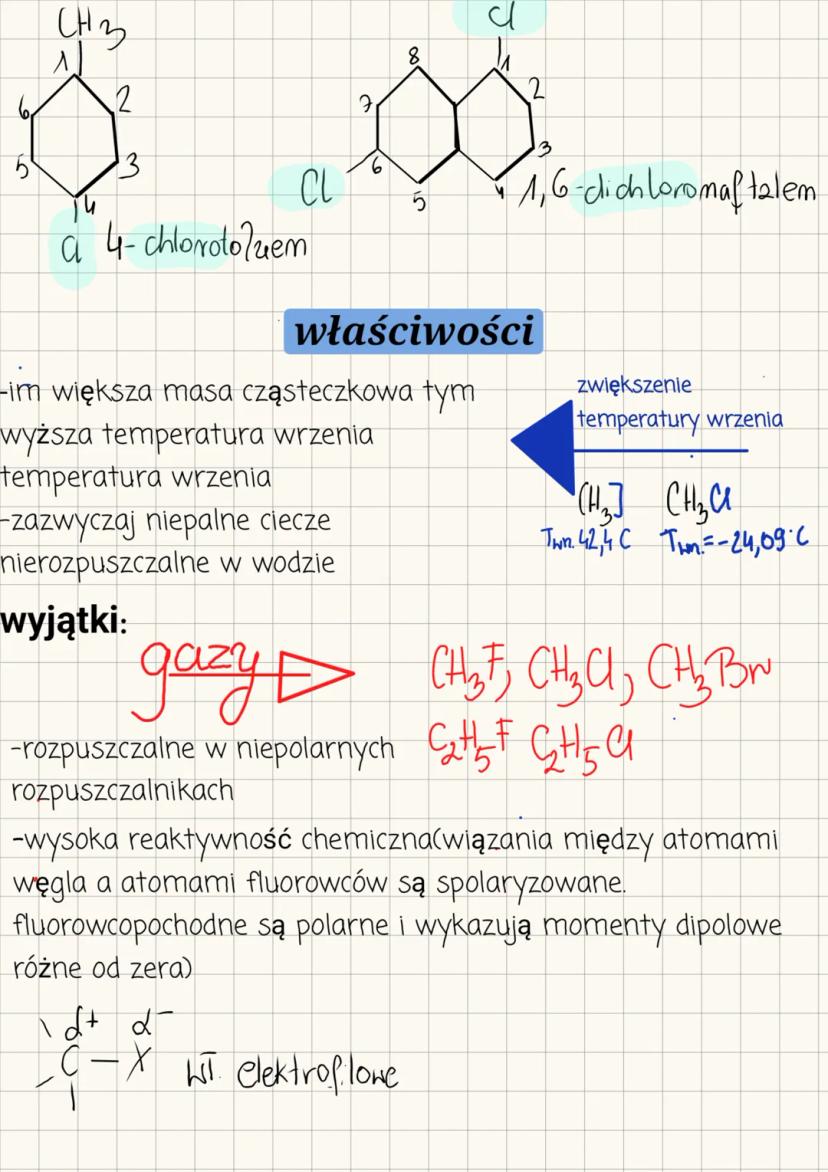 CH3
1
2
3
4
5
6
Cl
4-chlorotoluem
Cl
1
2
3
4
5
6
7
8
Cl
1,6-dichloronaftalem
właściwości
-im większa masa cząsteczkowa tym
wyższa temperatura wrzenia
temperatura wrzenia
-zazwyczaj niepalne ciecze
nierozpuszczalne w wodzie
zwiększenie
temperatury wrzenia
CH3J CH3Cl
Twn. 42,4 C Twn.=-24,09°C
wyjątki:
gazy
CH3F, CH3Cl, CH3Br
C2H5F C2H5Cl
-rozpuszczalne w niepolarnych
rozpuszczalnikach
-wysoka reaktywność chemiczna(wiązania między atomami
węgla a atomami fluorowców są spolaryzowane.
fluorowcopochodne są polarne i wykazują momenty dipolowe
różne od zera)
d+ d-
C-X wł. elektrofilowe